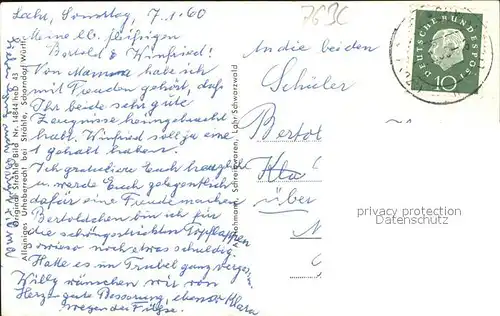 Lahr, Sonntag, 7.1.60
763C
Meine lb. fleißigen
Bertold & Winfried!
Von Mama habe ich
mit Freuden gehört, daß
Ihr beide sehr gute
Zeugnisse heimgebracht
habt. Winfried soll ja eine
1 gehabt haben.
Ich gratuliere Euch herzlich
u. werde Euch gelegentlich
dafür eine Freude machen
Bertoldchen bin ich für
die schöngestrickten Topflappen
sowieso noch etwas schuldig.
Hatte es im Trubel ganz verges.
Willy wünschen wir von
Herzen gute Besserung, ebenso Klara
wegen der Füße.
An die beiden
Schüler
Bertol
Kla
über
DEUTSCHE BUNDESPOST
10
Original Strähle Bild Nr.
Alleiniges Urheberrecht bei Strähle, Schorndorf Württ.
Schreibwaren, Lahr Schwarzwald
privacy protection
Datenschutz